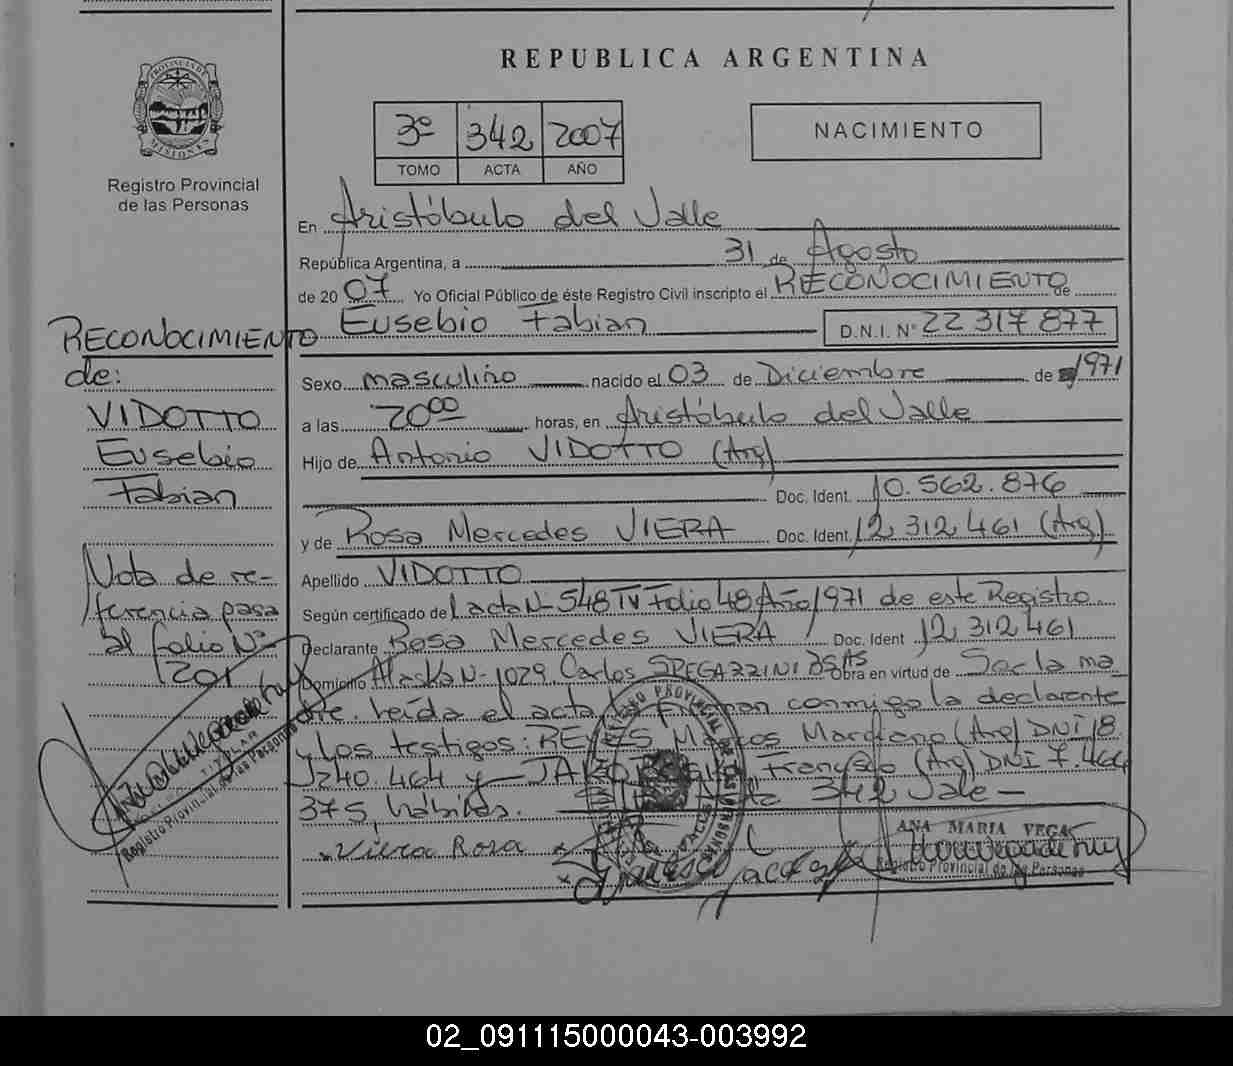 REPUBLICA ARGENTINA
PROVINCIA DE
MISIONES
Registro Provincial
de las Personas
3º 342 2007
TOMO ACTA AÑO
NACIMIENTO
En Aristóbulo del Valle
República Argentina, a 31 de Agosto
de 2007 Yo Oficial Público de éste Registro Civil inscripto el RECONOCIMIENTO de
Eusebio Fabian D.N.I. Nº 22 317 877
Sexo masculino nacido el 03 de Diciembre de 1971
a las 20ºº horas, en Aristóbulo del Valle
Hijo de Antonio VIDOTTO (Arg)
Doc. Ident. 10.562.876
y de Rosa Mercedes VIERA Doc. Ident. 12 312 461 (Arg)
Apellido VIDOTTO
Según certificado de Lacta Nº 548 TV Folio 48 Año 1971 de este Registro
Declarante Rosa Mercedes VIERA Doc. Ident 12 312 461
Domicilio Alaska Nº 1029 Carlos SPEGAZZINI BsAs Obra en virtud de Ser la ma
dre. Leída el acta la firman conmigo la declarante
y los testigos: REYES Marcos Mardono (Arg) DNI 18.
240.464 y Francisco (Arg) DNI 7.464
375, hábiles. 342 Vale
Viera Rosa
Francisco
ANA MARIA VEGA
Registro Provincial de las Personas
RECONOCIMIENTO
de:
VIDOTTO
Eusebio
Fabian
Nota de re-
ferencia pasa
al folio Nº
201
TITULAR
Registro Provincial de las Personas
02_091115000043-003992